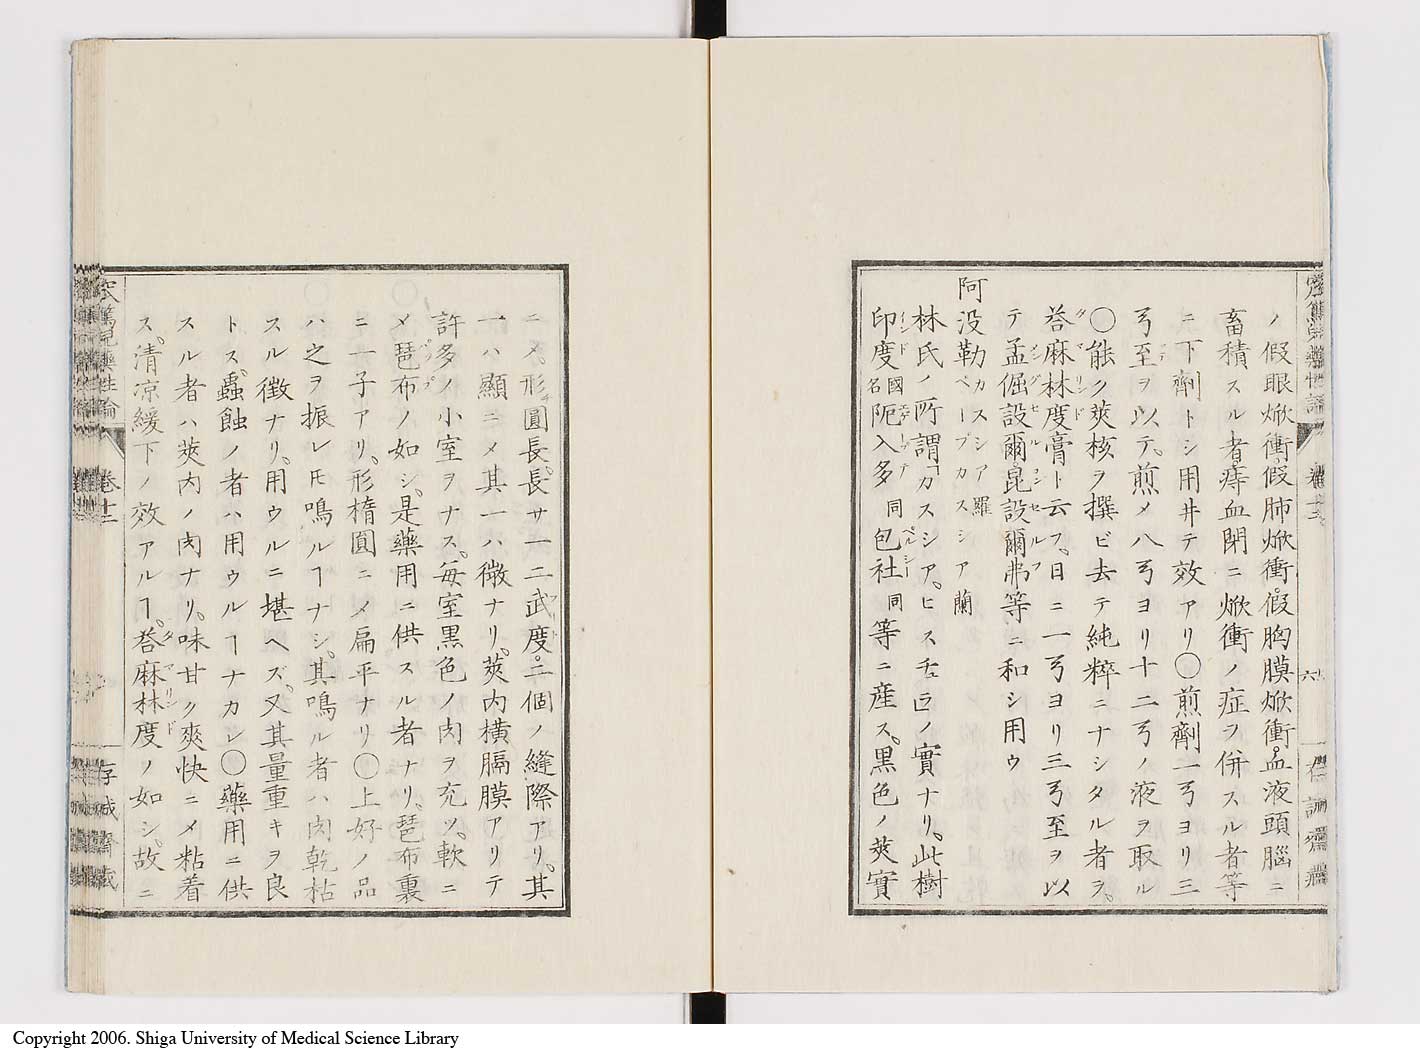 ノ假眼焮衝假肺焮衝。假胸膜焮衝。血液頭腦ニ
畜積スル者痔血閉ニ焮衝ノ症ヲ併スル者等
ニ下劑トシ用井テ效アリ〇煎劑一弓ヨリ三
弓至ヲ以テ。煎メ八弓ヨリ十二弓ノ液ヲ取ル
〇能ク莢核ヲ撰ビ去テ純粹ニナシタル者ヲ。
荅麻林度膏ト云フ。日ニ一弓ヨリ三弓至ヲ以
テ孟倔設爾昆設爾弗等ニ和シ用ウ
阿没勒カスシア羅 ペープカスシア蘭
林氏ノ所謂「カスシア。ヒスチュラ」ノ實ナリ。此樹
印度國名阨入多同包社同等ニ産ス。黒色ノ莢實
ニメ。形圓長。長サ一二武度。二個ノ縫際アリ。其
一ハ顯ニメ其一ハ微ナリ。莢内横膈膜アリテ
許多ノ小室ヲナス。毎室黒色ノ肉ヲ充ツ。軟ニ
メ琶布ノ如シ。是藥用ニ供スル者ナリ。琶布裏
ニ一子アリ。形楕圓ニメ扁平ナリ〇上好ノ品
ハ之ヲ振レ𪜈鳴ルヿナシ。其鳴ル者ハ肉乾枯
スル徴ナリ。用ウルニ堪ヘズ。又其量重キヲ良
トス。蠹蝕ノ者ハ用ウルヿナカレ〇藥用ニ供
スル者ハ莢内ノ肉ナリ。味甘ク爽快ニメ粘着
ス。清凉緩下ノ效アルヿ。荅麻林度ノ如シ。故ニ
卷十二
Copyright 2006. Shiga University of Medical Science Library